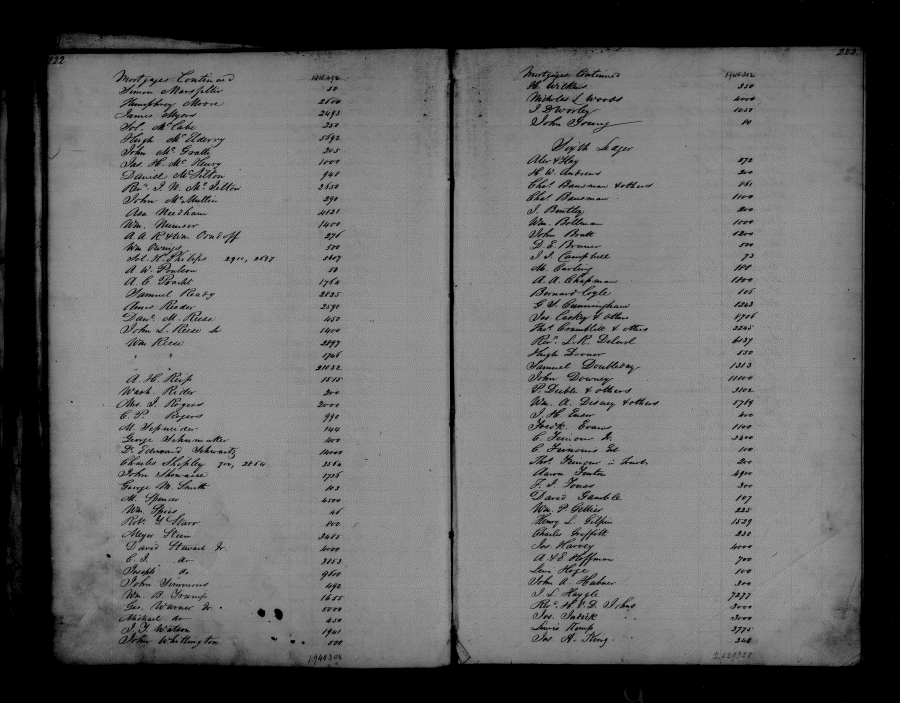 222
Mortgages Continued
Simon Marsfiller 50
Humphrey Moore 2600
James Myers 2493
Sol. McCabe 250
Hugh McElderry 5692
John McGrath 205
Jas. H. McHenry 1000
Daniel McPilton 948
Revd. J. N. McJilton 2650
John McMullin 290
Asa Needham 4121
Wm. Numsen 1400
A A R & Wm. Orndoff 276
Wm Owings 500
Sol. H. Philips 2911, 2697 5607
A. W. Poulson 50
A. C. Pracht 1764
Samuel Ready 2825
Amos Reader 2590
Danl. M. Reese 450
John L. Reese 1400
Wm Reese 2897
" " 1746
21032
A. H. Reip 1515
Wash. Rider 200
Mrs. J. Rogers 2000
C. P. Rogers 990
M. Schneider 144
George Schumaker 400
Dr. Edward Schwartz 14000
Charles Shipley 700, 2864 3564
John 1736
George M. Smith 103
M. Spencer 4500
Wm. Spies 46
Robt. Y. Starr 800
Meyer Stein 3485
David Stewart Jr. 4000
C. J. do 3853
Joseph do 9600
John Simmons 492
Wm. B. Trump 1655
Geo. Warner Jr. 5000
Michael do 450
J. T. Watson 1901
John Whittington 500
1940302
223
Mortgages Continued 1940302
H. Wilkins 350
Nicholas L Woods 4000
J. D. Worley 1050
John Young 80
Sixth Ledger
Alex Hay 272
H. W. Andrews 200
Chas. Bausman & others 161
Chas. Bausman 1100
J. Bentley 200
Wm. Bollman 1000
John Bratt 1200
D. E. Bruner 500
J. J. Campbell 73
M. Carling
A. A. Chapman 1100
Bernard Coyle 105
G. Y. Cunningham 1243
Jas. Caskey & others 5706
Thos. Cramblitt & others 2245
Revd. L. R. Deluol 6127
Hugh Dooner 550
Samuel Doubleday 1313
John Downey 11100
P. Dieble & others 3102
Wm. A. Disney & others 5719
J. H. Ensor 400
Fredk. Evans 1100
C. Jr. 3400
C. 100
Thos. 200
Aaron Fenton 4900
F. J. Foner 300
David Gamble 107
Wm. P. Gillies 225
Henry L. Gilpin 1529
Charles Griffith 230
Jos Harvey 4000
A & E Hoffman 700
Levi Hoge 100
John A. Hubner 300
J. L. 7277
Revd. H. V. D. Johns 3000
Jos. 3000
Lewis Kemp 3775
Jas. A. King 248